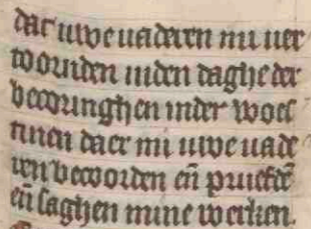 dat uwe uaderen mi uer
toornden inden daghe der
becoringhen inder woes
tinen daer mi uwe uade
ren becoorden en̄ pruefdē
en̄ saghen mine werken.